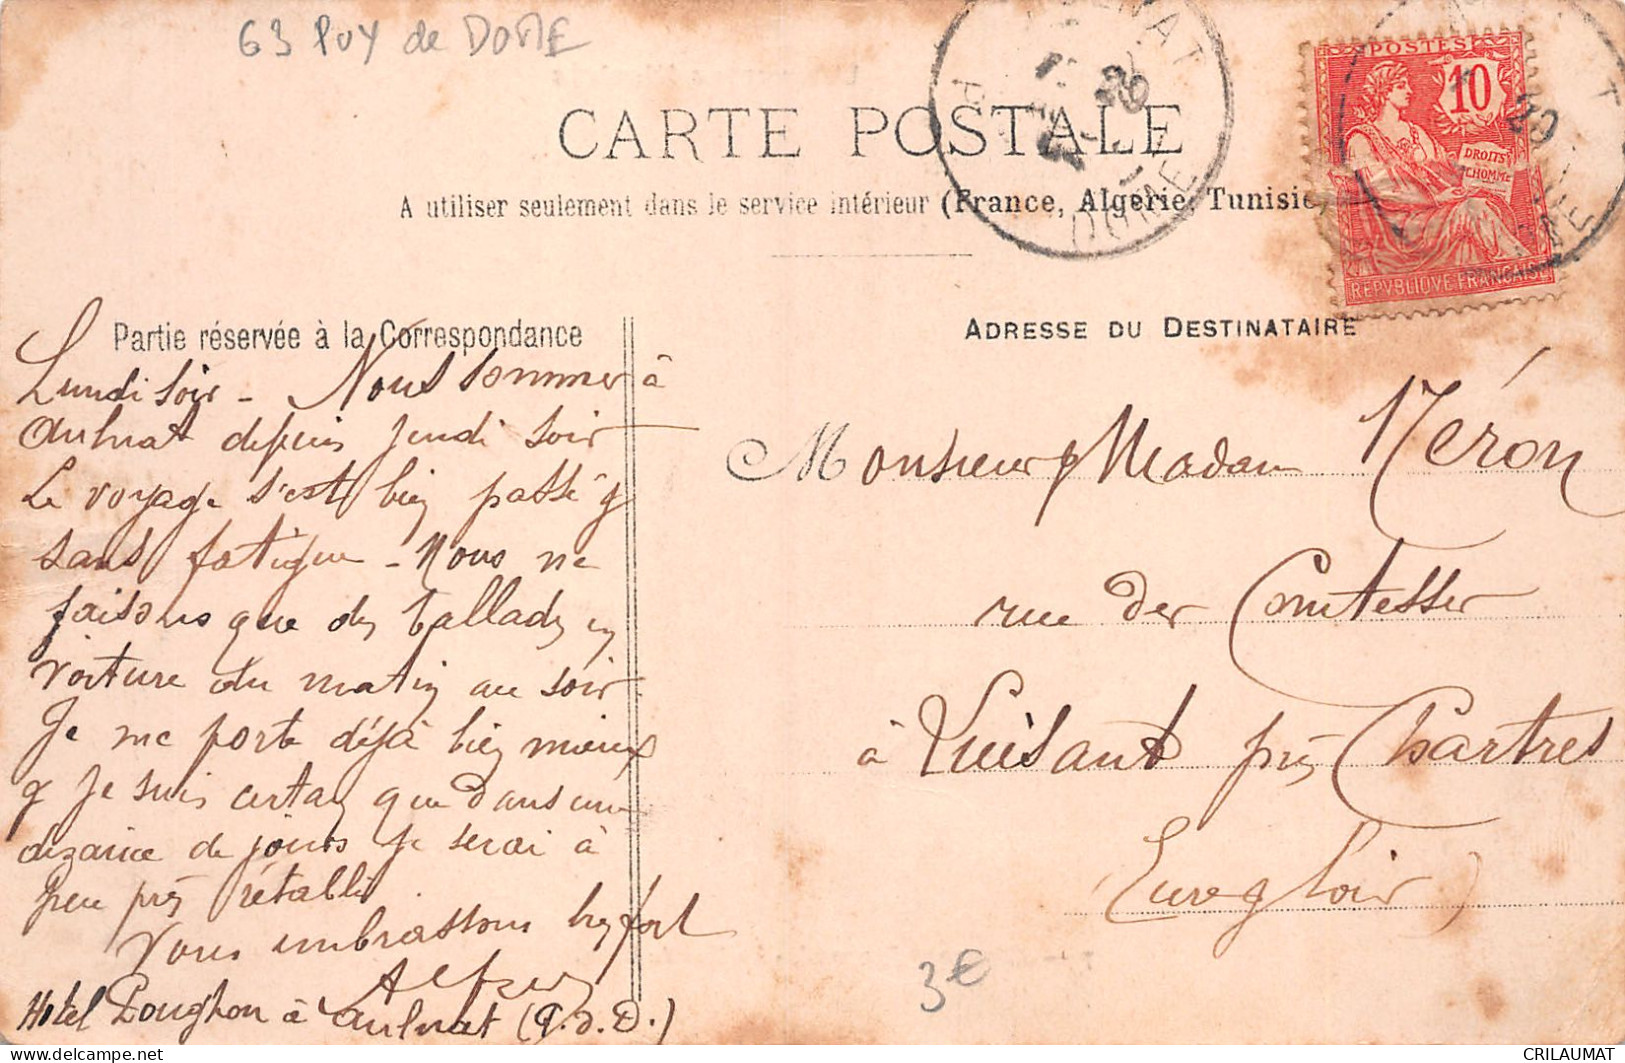 63 PUY de DOME
CARTE POSTALE
A utiliser seulement dans le service intérieur (France, Algérie, Tunisie
POSTES
10
DROITS
DE L'HOMME
REPVBLIQVE FRANCAISE
DOME
Partie réservée à la Correspondance
ADRESSE DU DESTINATAIRE
Lundi soir - Nous sommes à
Aulnat depuis jeudi soir
Le voyage s'est bien passé &
sans fatigue - Nous ne
faisons que des ballades en
voiture du matin au soir.
Je me porte déjà bien mieux
& je suis certain que dans une
dizaine de jours je serai à
peu près rétabli
Vous embrassons bien fort
Hotel à Aulnat (P.d.D.)
Monsieur & Madame Néron
rue des Comtesses
à Luisant près Chartres
(Eure & Loir)
3€
CRILAUMAT